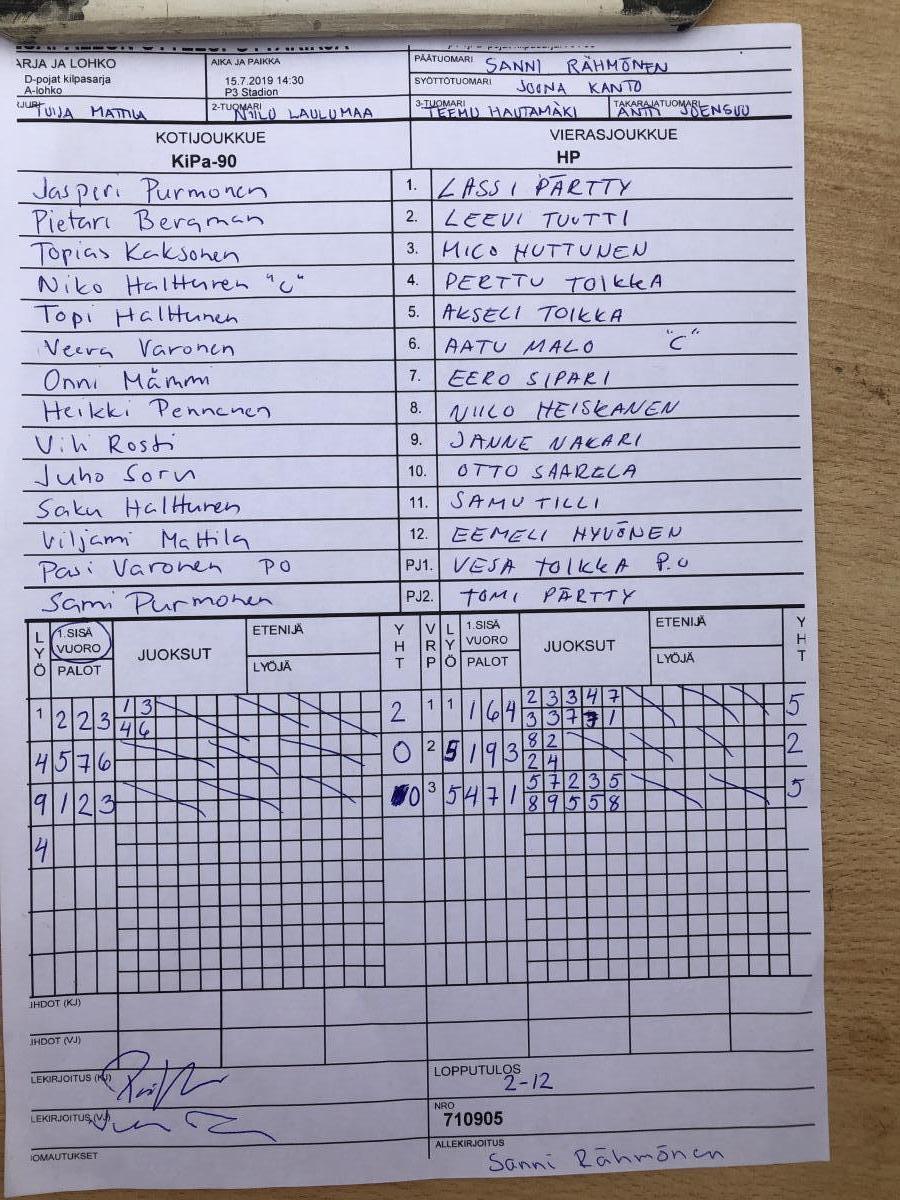 ARJA JA LOHKO
D-pojat kilpasarja
A-lohko
AIKA JA PAIKKA
15.7.2019 14:30
P3 Stadion
PÄÄTUOMARI SANNI RÄHMÖNEN
SYÖTTÖTUOMARI JOONA KANTO
TUIJA MATTILA
2-TUOMARI NIILO LAULUMAA
3-TUOMARI TEEMU HAUTAMÄKI
TAKARAJATUOMARI ANTTI JOENSUU
KOTIJOUKKUE VIERASJOUKKUE
KiPa-90 HP
Jasperi Purmonen 1. LASSI PÄRTTY
Pietari Bergman 2. LEEVI TUUTTI
Topias Kaksonen 3. MICO HUTTUNEN
Niko Halttunen "C" 4. PERTTU TOIKKA
Topi Halttunen 5. AKSELI TOIKKA
Veera Varonen 6. AATU MALO "C"
Onni Mämmi 7. EERO SIPARI
Heikki Pennanen 8. NIILO HEISKANEN
Vili Rosti 9. JANNE NAKARI
Juho Soru 10. OTTO SAARELA
Saku Halttunen 11. SAMU TILLI
Viljami Mattila 12. EEMELI HYVÖNEN
Pasi Varonen PO PJ1. VESA TOIKKA P.O
Sami Purmonen PJ2. TOMI PÄRTTY
LYÖ 1.SISÄ VUORO PALOT JUOKSUT ETENIJÄ LYÖJÄ YHT VRP LYÖ 1.SISÄ VUORO PALOT JUOKSUT ETENIJÄ LYÖJÄ YHT
1 3 2 3 3 4 7
1 2 2 3 2 1 1 1 6 4 5
4 6 3 3 7 1
8 2
4 5 7 6 0 2 5 1 9 3 2
2 4
5 7 2 3 5
9 1 2 3 0 3 5 4 7 1 5
8 9 5 5 8
4
JHDOT (KJ)
JHDOT (VJ)
LEKIRJOITUS (KJ)
LOPPUTULOS
2-12
LEKIRJOITUS (VJ)
NRO
710905
IOMAUTUKSET
ALLEKIRJOITUS
Sanni Rähmönen